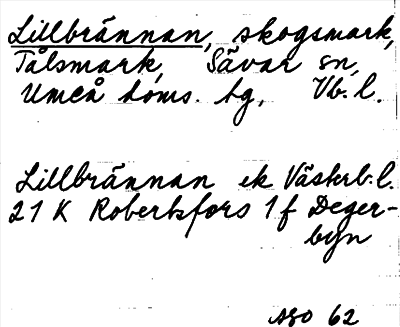 Lillbrännan, skogsmark,
Tålsmark, Sävar sn,
Umeå doms. tg, Vb. l.
Lillbrännan ek Västerb. l.
21 K Robertsfors 1 f Deger-
byn
ASO 62